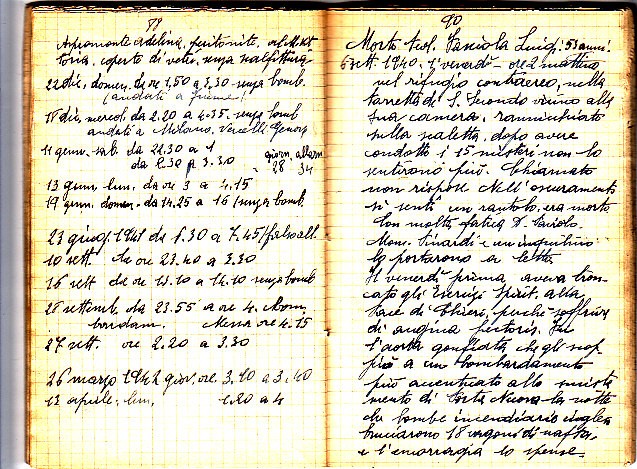 89
Aspromonte Adelina, peritonite, al M.
toria, coperto di vetri, senza scalfittura
22 dic. domen. da ore 1,50 a 3.30 senza bomb.
(andati a fiume)
18 dic. mercol. da 2.20 a 4.35. senza bomb
andati a Milano, Vercelli Genova
11 genn. sab. da 21.30 a 1 giorn. allarm
da 2.30 a 3.30 28 34
13 genn. lun. da ore 3 a 4.15
19 genn. domen. da 14.25 a 16 senza bomb.
23 giug. 1941 da 1.30 a 7.45 falso all.
10 sett. da ore 23.40 a 3.30
16 sett da ore 13.10 a 14.10 senza bomb
28 settemb. da 23.55 a ore 4. Bom
bardam. Messa ore 4.15
27 sett. ore 2.20 a 3.30
26 marzo 1942 giov. ore 3.10 a 3.40
13 aprile. lun. 1.20 a 4
90
Morto teol. Fasiola Luigi. 53 anni.
6 sett. 1940. 1° venerdì - ore 2 mattino
nel rifugio contraereo, nella
torretta di S. Secondo vicino alla
sua camera, rannicchiato
sulla scaletta, dopo avere
condotti i 15 misteri non lo
sentirono più. Chiamato
non rispose. Nell'oscuramento
si sentì un rantolo, era morto
Con molta fatica D.
Mons. Pinardi e un inquilino
lo portarono a letto.
Il venerdì prima aveva tron-
cato gli Esercizi Spirit. alla
Pace di Chieri, perché soffriva
di angina pectoris. Fu
l'aorta gonfiata che gli scop-
piò a un bombardamento
più accentuato allo smista
mento di Porta Nuova la notte
che bombe incendiarie inglesi
bruciarono 18 vagoni di nafta,
e l'emorragia lo spense.